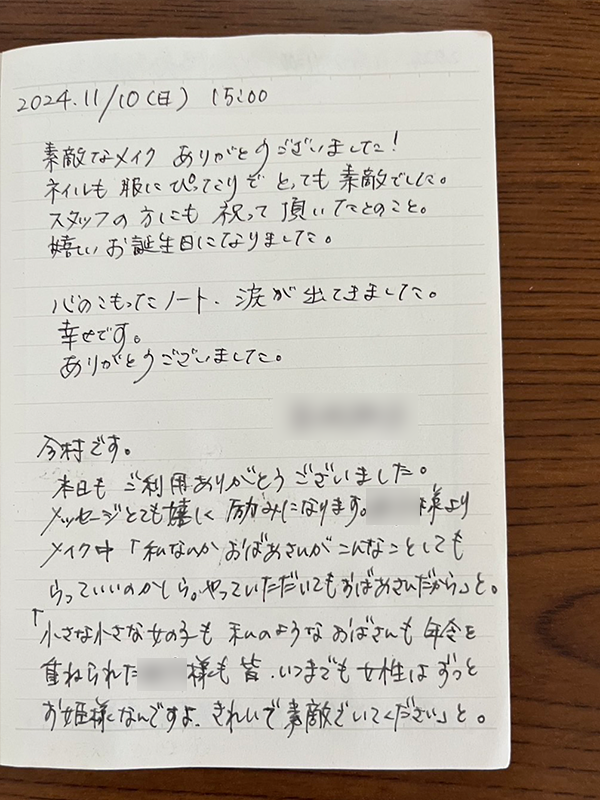 2024.11/10(日) 15:00
素敵なメイク ありがとうございました!
ネイルも 服に ぴったりで とっても 素敵でした。
スタッフの 方にも 祝って 頂いたとのこと。
嬉しい お誕生日になりました。
心のこもったノート、涙が 出てきました。
幸せです。
ありがとうございました。
今村です。
本日も ご利用ありがとうございました。
メッセージとても嬉しく 励みになります。様より
メイク中 「私なんか おばあさんが こんなことしても
らっていいのかしら。やっていただいてもおばあさんだから」と。
「小さな小さな女の子も 私のような おばさんも 年令を
重ねられた様も 皆、いつまでも 女性は ずっと
お姫様なんですよ、きれいで素敵でいてください」と。